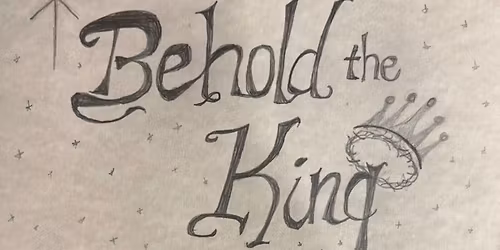 Behold the
King